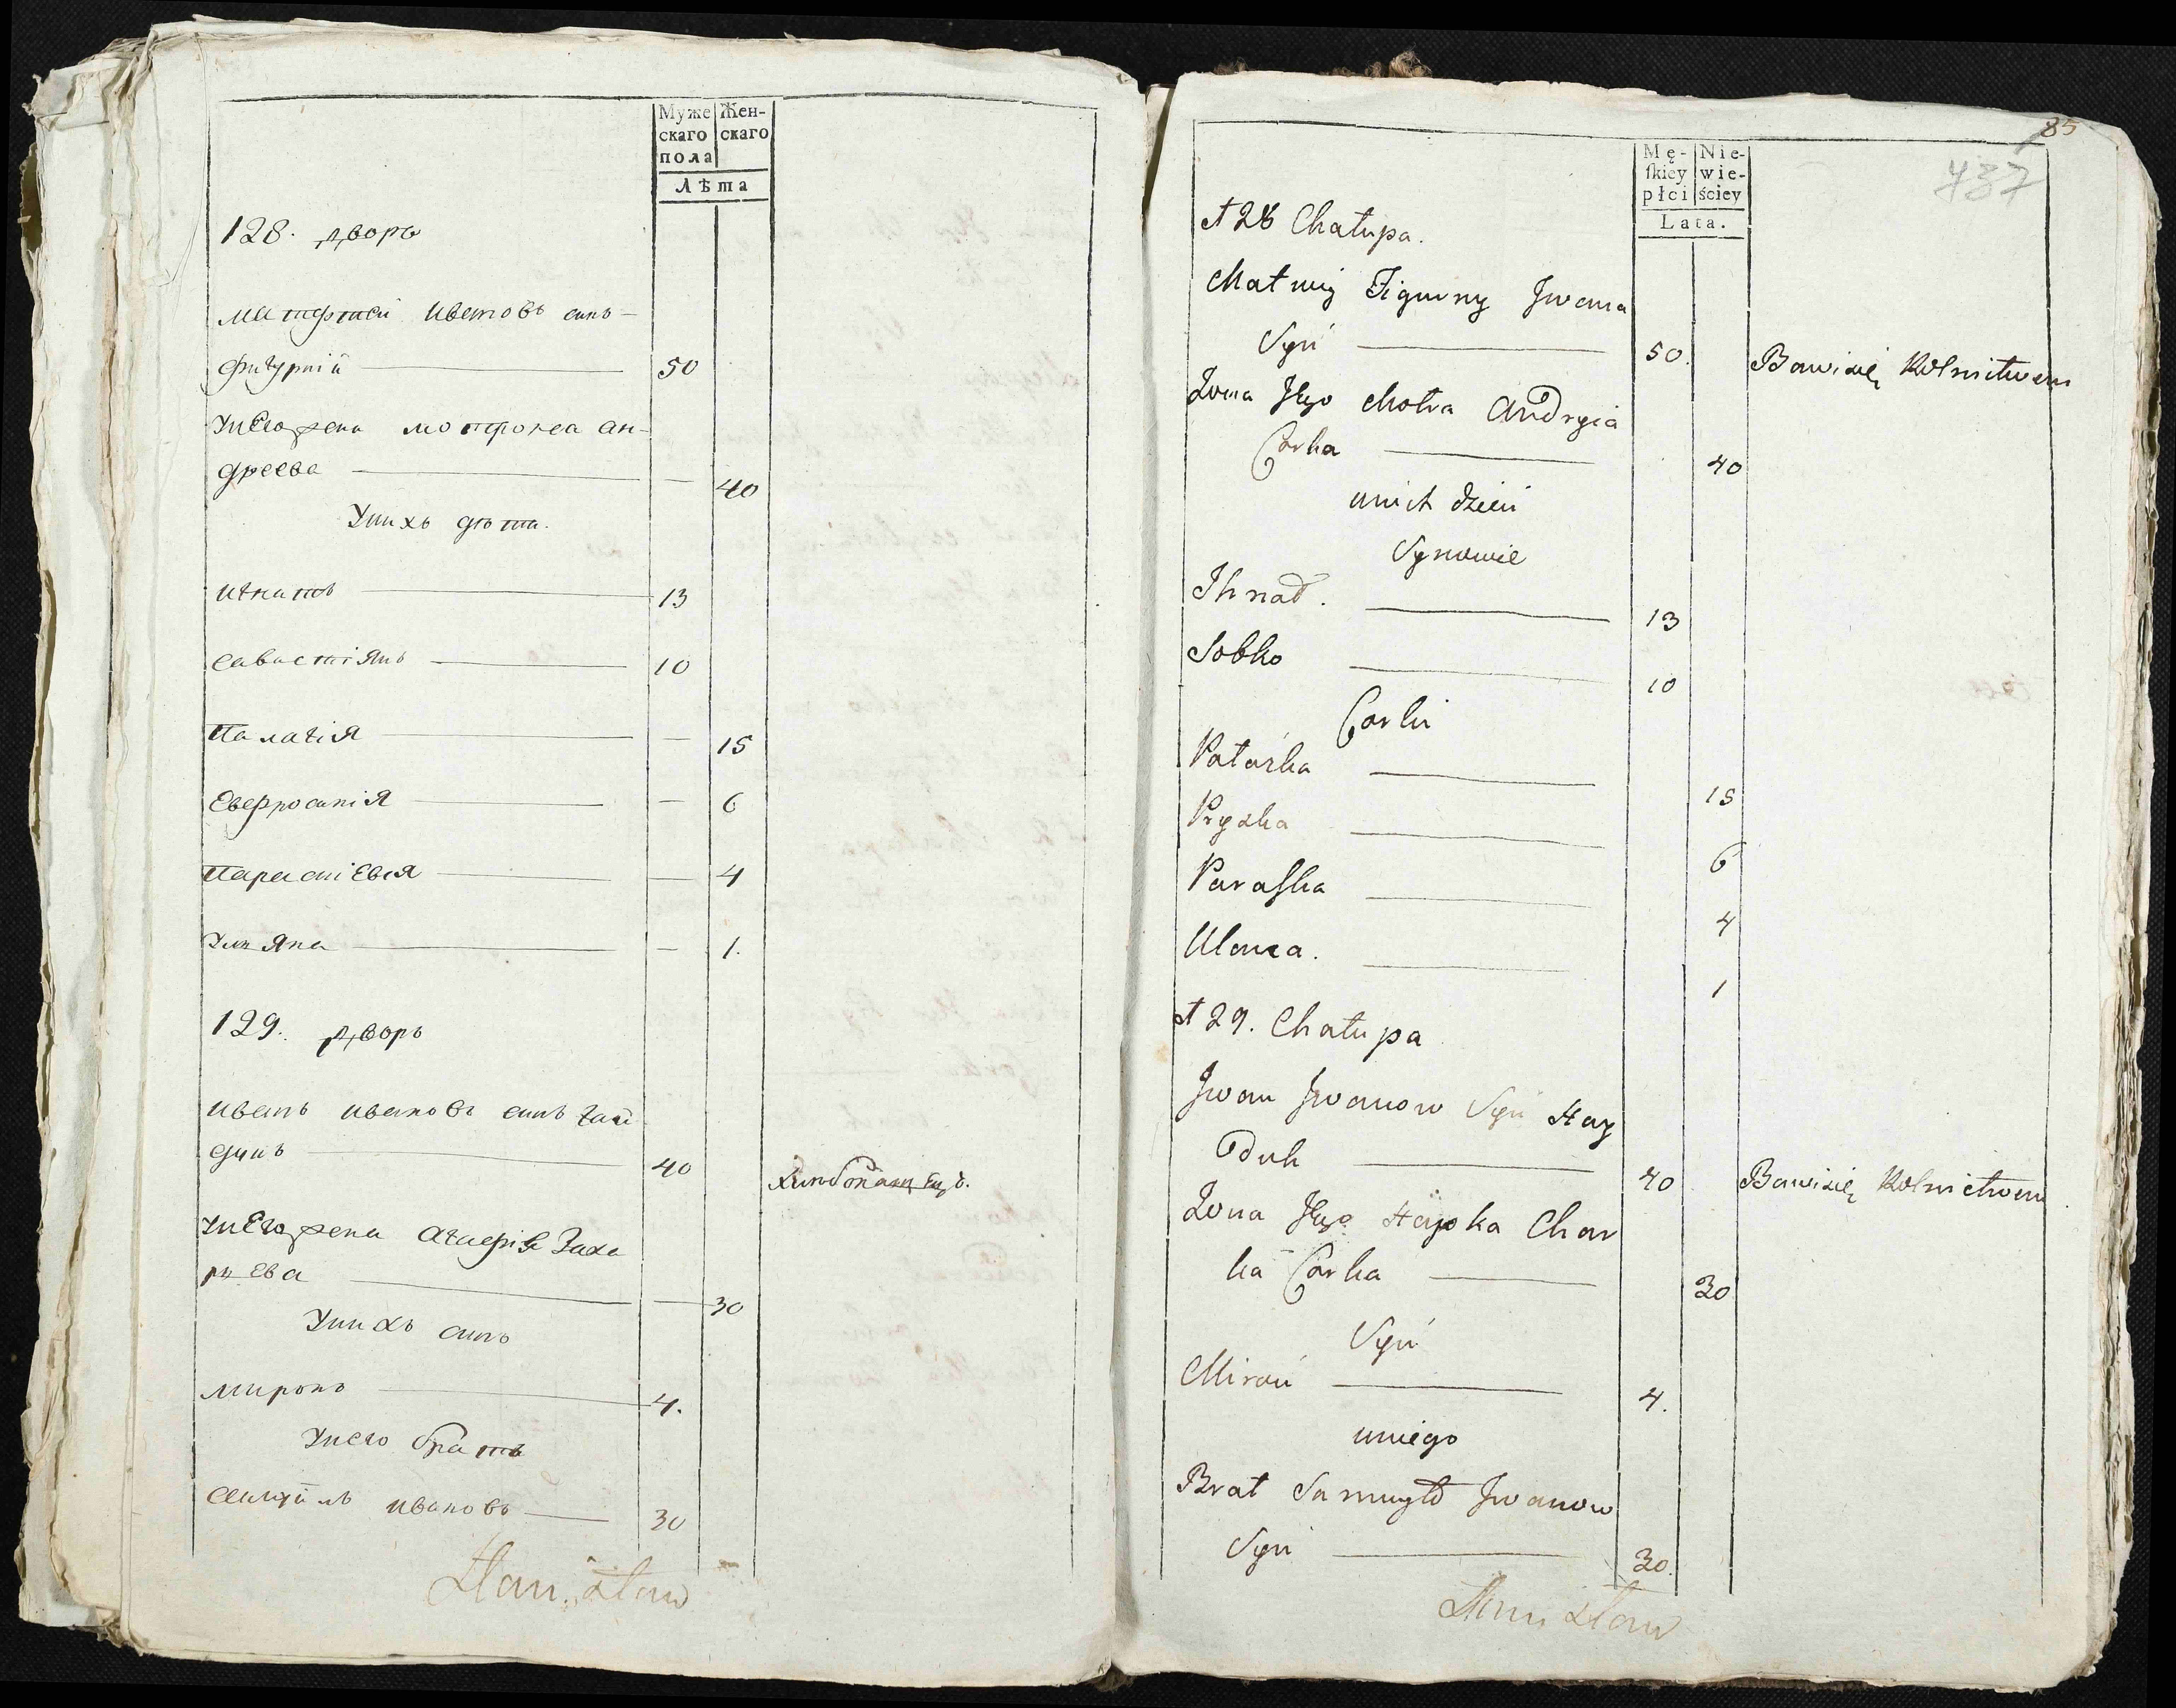 Муже
скаго
пола
Жен-
скаго
Лѣта
128. дворъ
Матфтей Ивановъ синъ
Фигурній 50
Унего жена Мотрона Ан-
дреева 40
Унихъ дѣти.
Игнатъ 13
Савастіянъ 10
Палагія 15
Евфросинія 6
Параскіевія 4
Уліяна 1.
129. дворъ
Иванъ Ивановъ синъ Гай
дукъ 40
Хлибопашецъ.
Унего жена Агафія Заха
риева 30
Унихъ синъ
Миронъ 4.
Унего братъ
Самуйлъ Ивановъ 30
Stanisław
85
437
Mę-
skiey
płci
Nie-
wie-
ściey
Lata.
128 Chałupa.
Matwiy Figurny Jwana
Syń 50. Bawi się Rolnitwem
Żona Jego Motra Andryia
Corka 40
unich dzieci
Synowie
Ihnat. 13
Sobko 10
Corki
Pataśka 15
Pryśka 6
Paraska 4
Ulana. 1
129. Chałupa
Jwan Jwanow Syń Hay
duk 40 Bawi się Rolnictwem
Żona Jego Hapka Char
ka Corka 30
Syń
Miroń 4.
uniego
Brat Samuyło Jwanow
Syń 30.
Stanisław